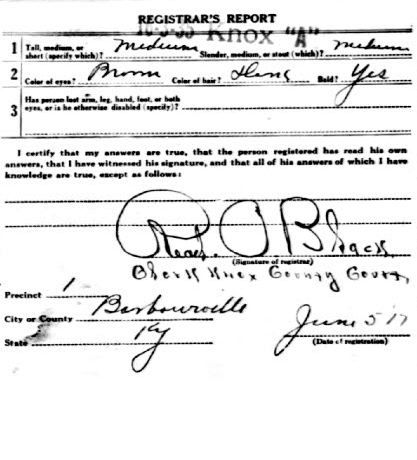 REGISTRAR'S REPORT
16-3-35 Knox "A"
1 Tall, medium, or short (specify which)? Medium Slender, medium, or stout (which)? medium
2 Color of eyes? Brown Color of hair? Bald? Yes
3 Has person lost arm, leg, hand, foot, or both
eyes, or is he otherwise disabled (specify)?
I certify that my answers are true, that the person registered has read his own
answers, that I have witnessed his signature, and that all of his answers of which I have
knowledge are true, except as follows:
Read. O Black
(Signature of registrar)
Clerk Knox County Court,
Precinct 1
City or County Barbourville
State Ky
June 5 17
(Date of registration)